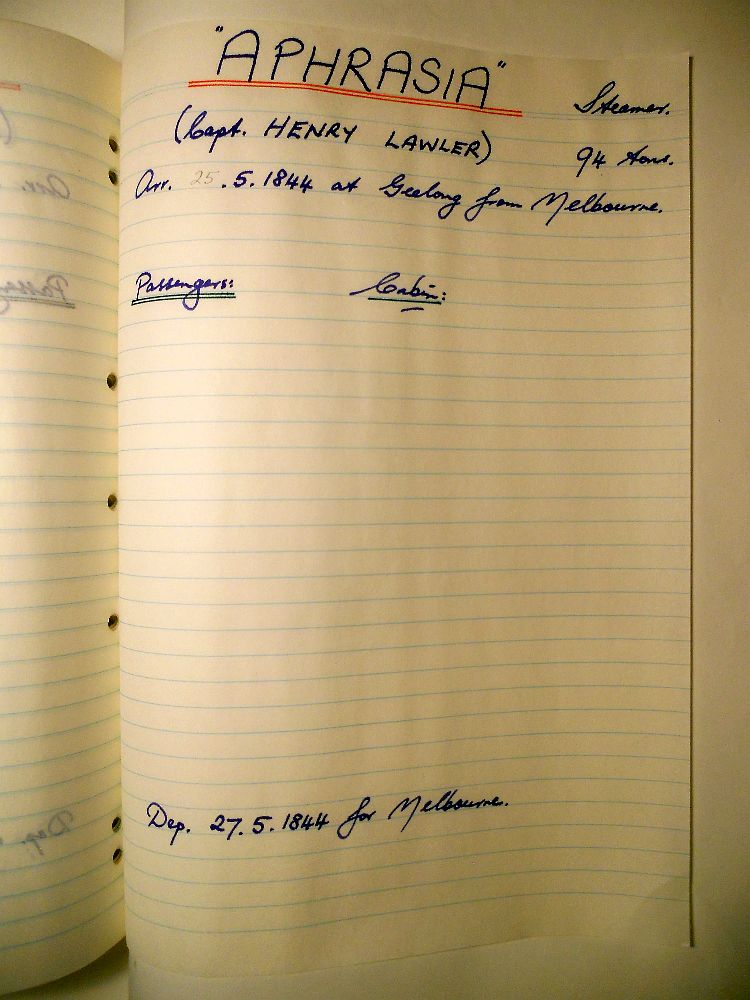 "APHRASIA"
Steamer.
(Capt. HENRY LAWLER)
94 tons.
Arr. 25.5.1844 at Geelong from Melbourne.
Passengers: Cabin:
Dep. 27.5.1844 for Melbourne.